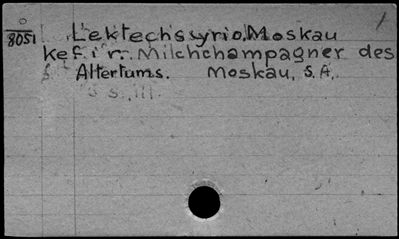 O
8051 Lektechssyrio, Moskau
Kefir. Milchchampagner des
Altertums. Moskau, S.A.
S s. ill.